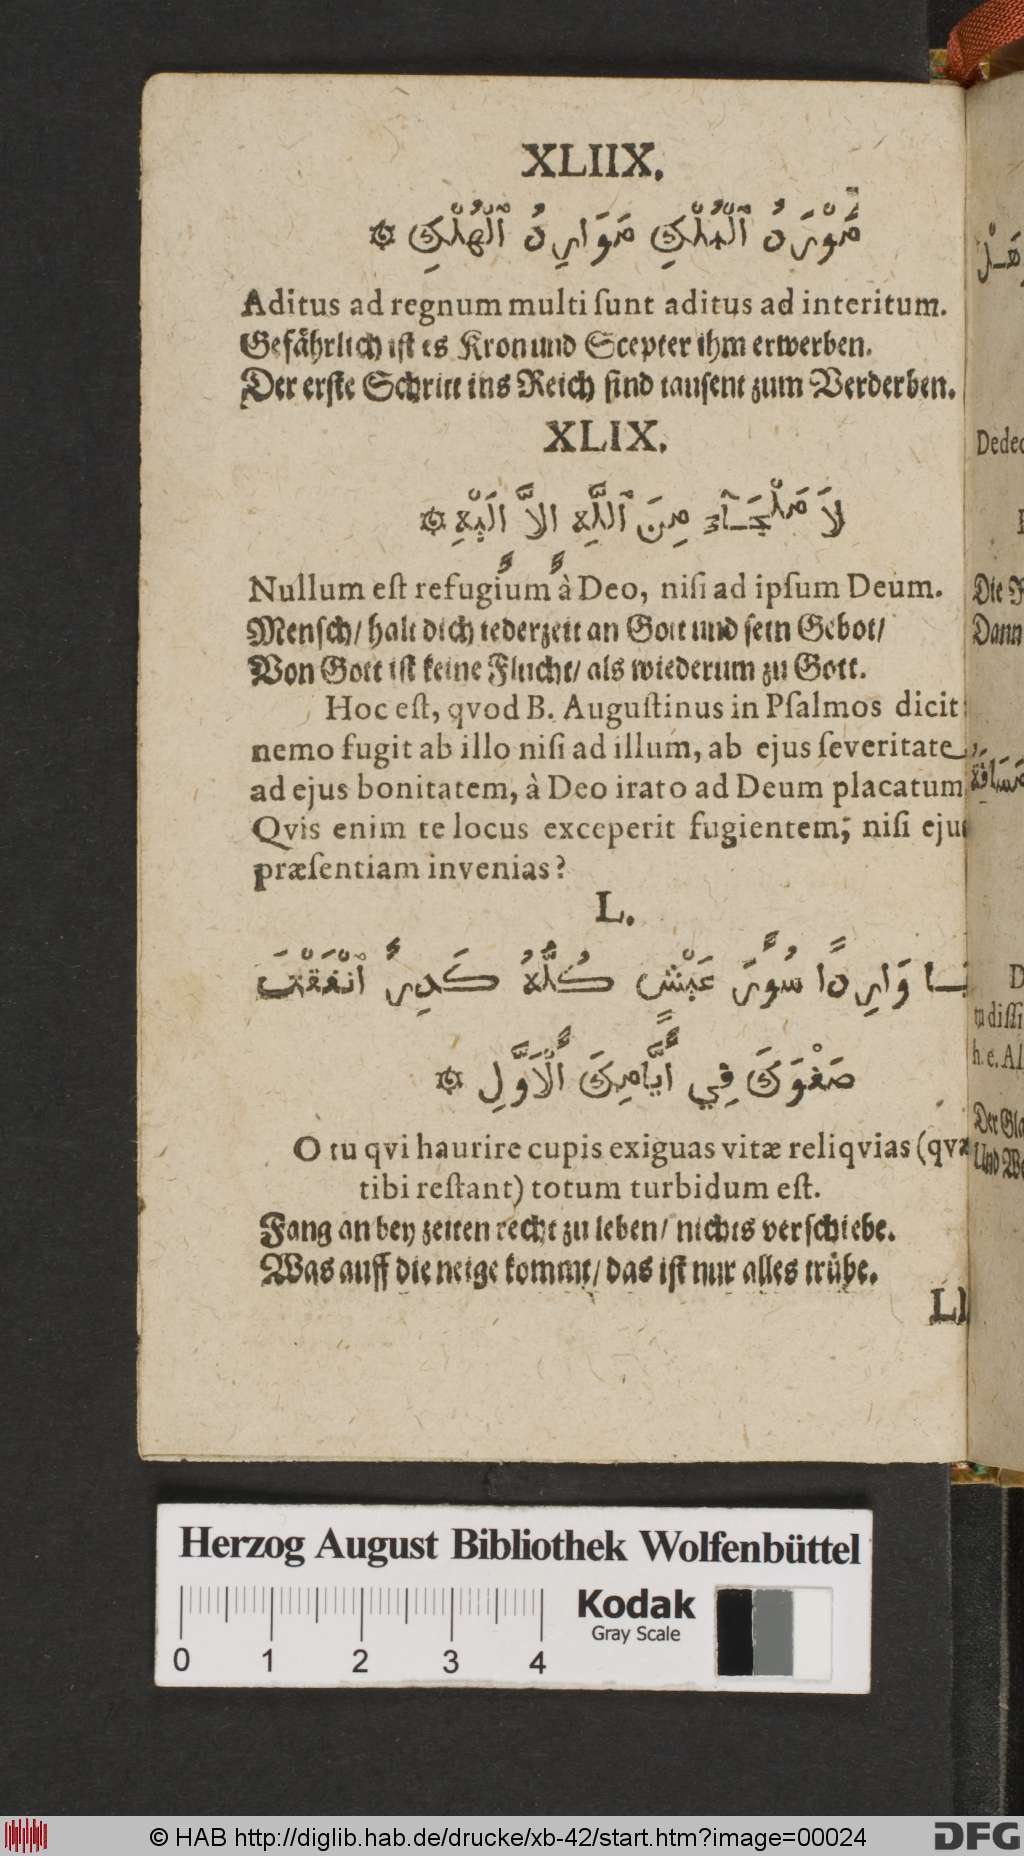 XLIIX.
مَوْرَدُ ٱلْمُلْكِ مَوَارِدُ ٱلْهُلْكِ ۞
Aditus ad regnum multi ſunt aditus ad interitum.
Gefährlich iſt es Kron und Scepter ihm erwerben.
Der erſte Schritt ins Reich ſind tauſent zum Verderben.
XLIX.
لاَ مَلْجَـآءَ مِنَ ٱللَّهِ الاَّ الَيْهِ ۞
Nullum eſt refugium à Deo, niſi ad ipſum Deum.
Menſch/ halt dich iederzeit an Gott und ſein Gebot/
Von Gott iſt keine Flucht/ als wiederum zu Gott.
Hoc eſt, qvod B. Auguſtinus in Pſalmos dicit:
nemo fugit ab illo niſi ad illum, ab ejus ſeveritate
ad ejus bonitatem, à Deo irato ad Deum placatum
Qvis enim te locus exceperit fugientem; niſi eju
præſentiam invenias?
L.
يـا وَارِدًا سُوَّرَ عَيْشٍ كُلُّهُ كَدِرٌ ٱنْفَقْتَ
صَفْوَكَ فِي أَيَّامِكَ ٱلْاَوَّلِ ۞
O tu qvi haurire cupis exiguas vitæ reliqvias (qvæ
tibi reſtant) totum turbidum eſt.
Fang an bey zeiten recht zu leben/ nichts verſchiebe.
Was auff die neige kommt/ das iſt nur alles trübe.
LI
Dedec
Die
Dann
tu diſſi
h. e. Al
Der Gla
Und We
Herzog August Bibliothek Wolfenbüttel
Kodak
Gray Scale
0 1 2 3 4
© HAB http://diglib.hab.de/drucke/xb-42/start.htm?image=00024
DFG